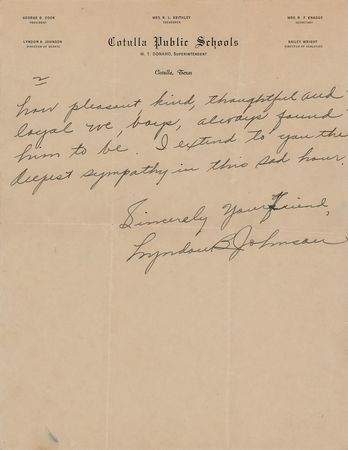 GEORGE D. COOK
PRESIDENT
MRS. K. L. KEITHLEY
TREASURER
MRS. R. F. KNAGGS
SECRETARY
LYNDON B. JOHNSON
DIRECTOR OF DEBATE
Cotulla Public Schools
BAILEY WRIGHT
DIRECTOR OF ATHLETICS
W. T. DONAHO, SUPERINTENDENT
Cotulla, Texas
2
how pleasant kind, thoughtful and
loyal we, boys, always found
him to be. I extend to you the
deepest sympathy in this sad hour.
Sincerely Your Friend,
Lyndon B Johnson